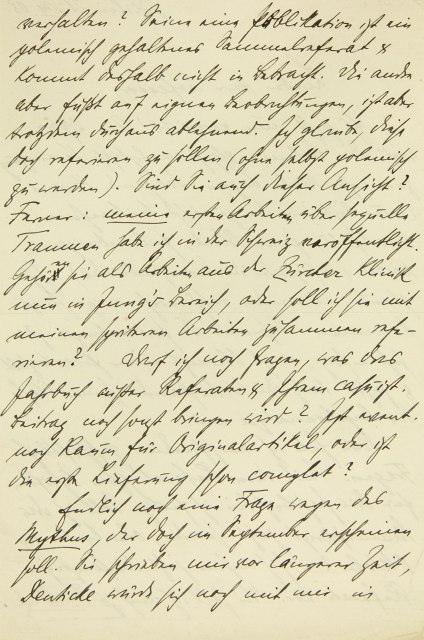 verhalten? Seine eine Publikation ist ein
polemisch gehaltenes Sammelreferat u
kommt deshalb nicht in Betracht. Die andere
aber fußt auf eignen Beobachtungen, ist aber
trotzdem durchaus ablehnend. Ich glaube, diese
doch referieren zu sollen (ohne selbst polemisch
zu werden). Sind Sie auch dieser Ansicht?
Ferner: meine ersten Arbeiten über sexuelle
Traumen habe ich in der Schweiz veröffentlicht.
Gehören sie als Arbeiten aus der Zürcher Klinik
nun in Jung's Bereich, oder soll ich sie mit
meinen späteren Arbeiten zusammen refe-
rieren? Darf ich noch fragen, was das
Jahrbuch außer Referaten u Ihrem casuist.
Beitrag noch sonst bringen wird? Ist event.
noch Raum für Originalartikel, oder ist
die erste Lieferung schon complet?
Endlich noch eine Frage wegen des
Mythus, der doch im September erscheinen
soll. Sie schrieben mir vor längerer Zeit,
Deuticke würde sich noch mit mir in